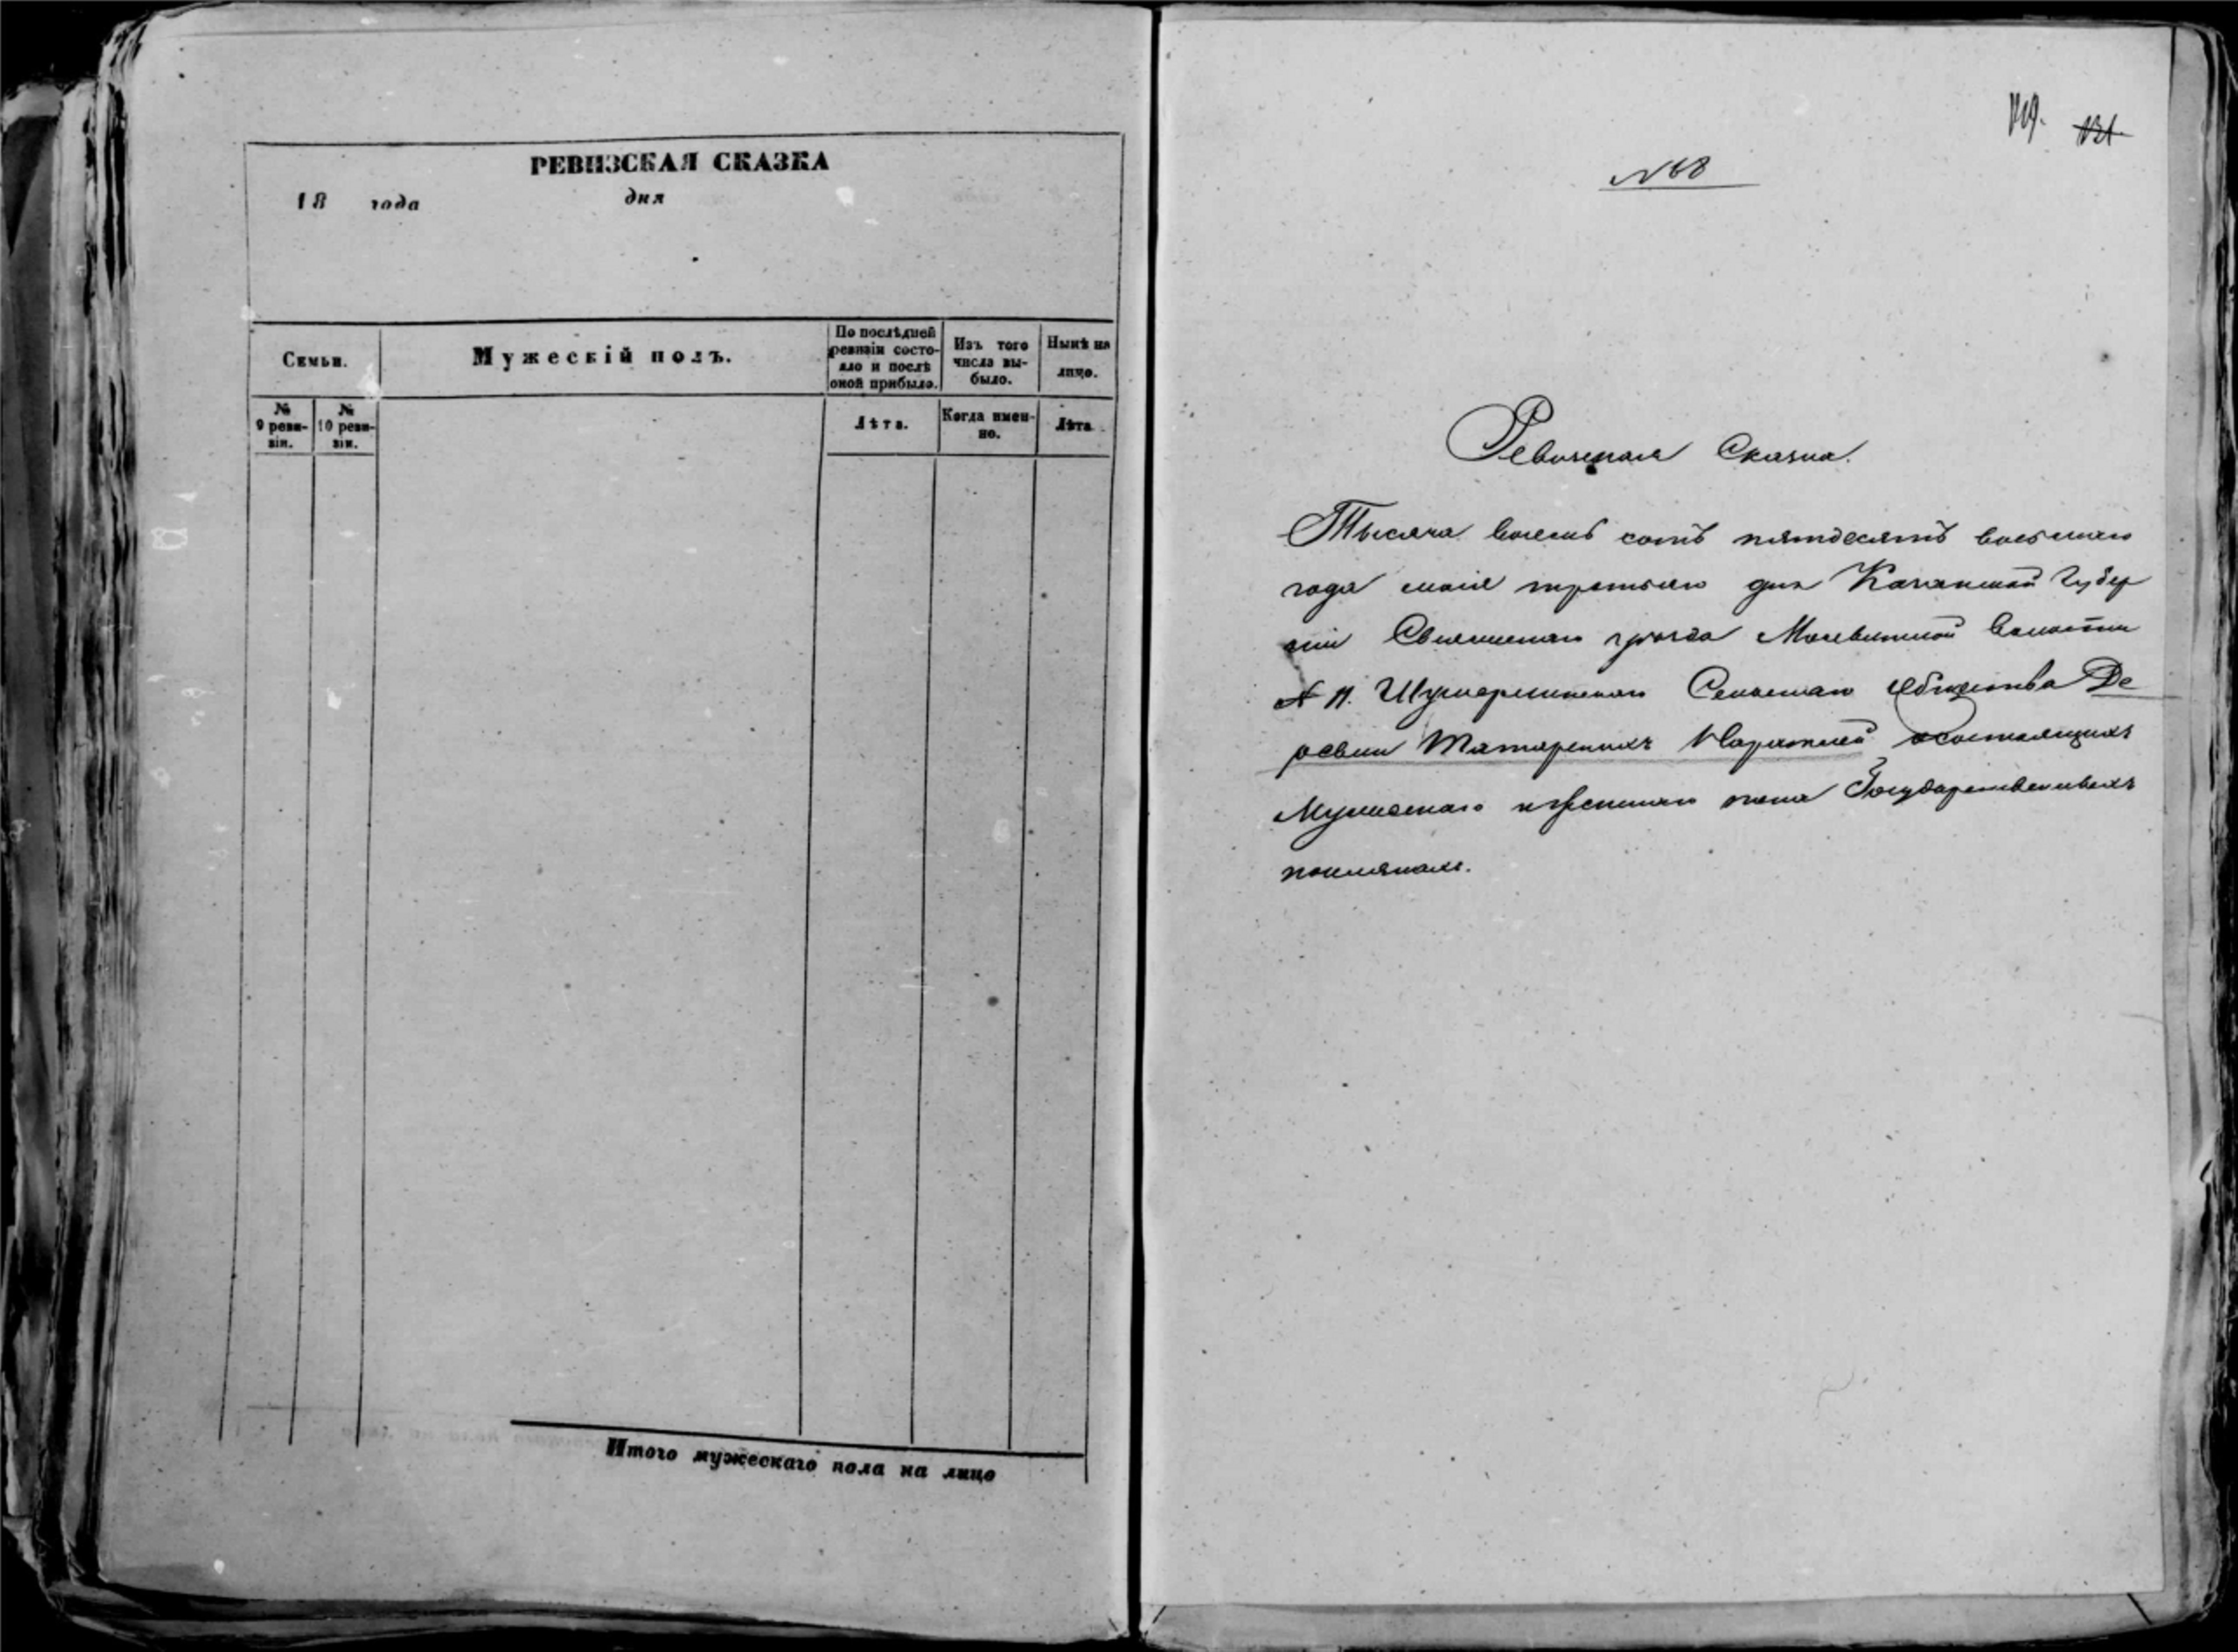 РЕВИЗСКАЯ СКАЗКА
18 года дня
Семьи.
Мужескій полъ.
По послѣдней ревизіи состо-
яло и послѣ
оной прибыло.
Изъ того
числа вы-
было.
Нынѣ на
лицо.
№
9 реви-
зіи.
№
10 реви-
зіи.
Лѣта.
Когда имен-
но.
Лѣта
Итого мужескаго пола на лицо
119. 121.
№ 68
Ревизская Сказка.
Тысяча восемь сотъ пятдесятъ восьмаго
года маія третьяго дня Казанской Губер
ніи Свіяжскаго уѣзда Волости
Сельскаго Общества Де
ревни Татарскихъ состоящихъ
Мужескаго и женскаго пола Государственныхъ
поселянахъ.